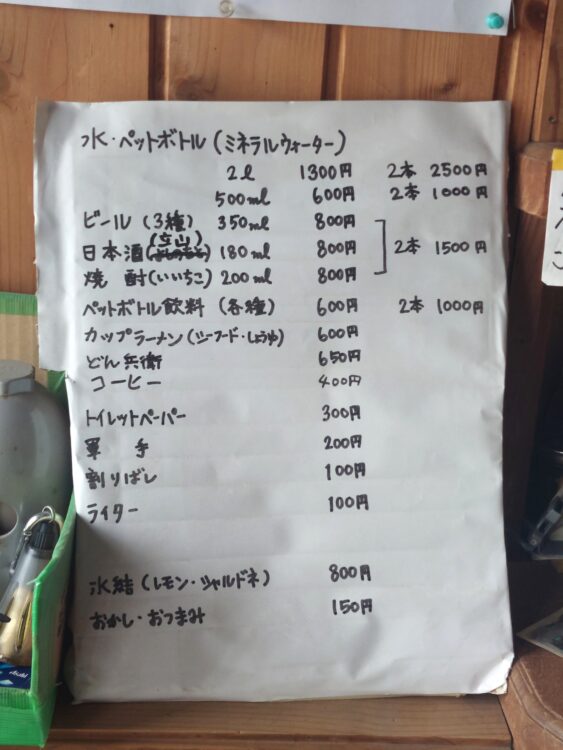 水・ペットボトル(ミネラルウォーター)
2ℓ 1300円 2本 2500円
500ml 600円 2本 1000円
ビール(3種) 350ml 800円
日本酒(立山) 180ml 800円 2本 1500円
焼酎(いいちこ) 200ml 800円
ペットボトル飲料(各種) 600円 2本 1000円
カップラーメン(シーフード・しょうゆ) 600円
どん兵衛 650円
コーヒー 400円
トイレットペーパー 300円
軍手 200円
割りばし 100円
ライター 100円
氷結(レモン・シャルドネ) 800円
おかし・おつまみ 150円